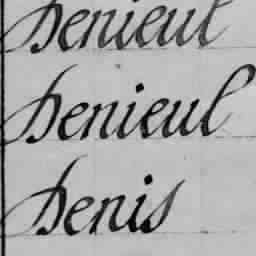 Denieul
Denieul
Denis